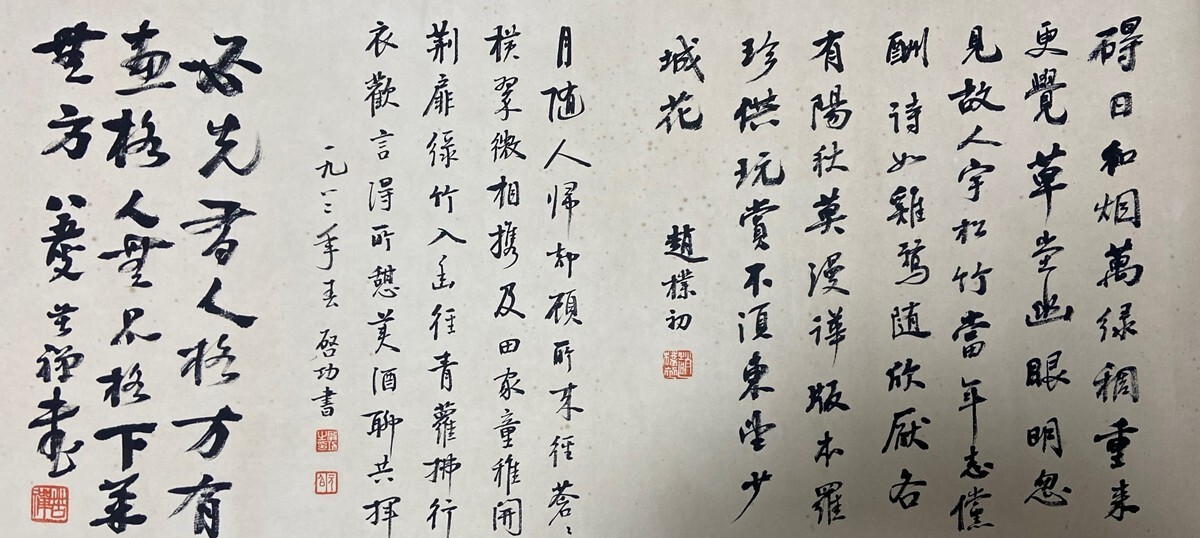 碍日和烟萬绿稠重来
更覺草堂幽眼明忽
見故人字松竹當年志儻
酬诗如雞鶩随欣厭各
有陽秋莫漫譁版本羅
珍供玩賞不須東望少
城花
趙樸初
月随人帰却顧所来径蒼々
横翠微相携及田家童稚開
荆扉绿竹入幽径青蘿拂行
衣歡言得所憩美酒聊共揮
一九八二年春 啓功書
必先有人格方有
畫格人無品格下筆
無方 八叟苦禅書